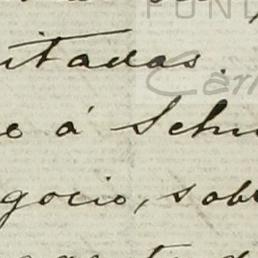 FUND
itadas.
Car
e á Schu
gocio, sob